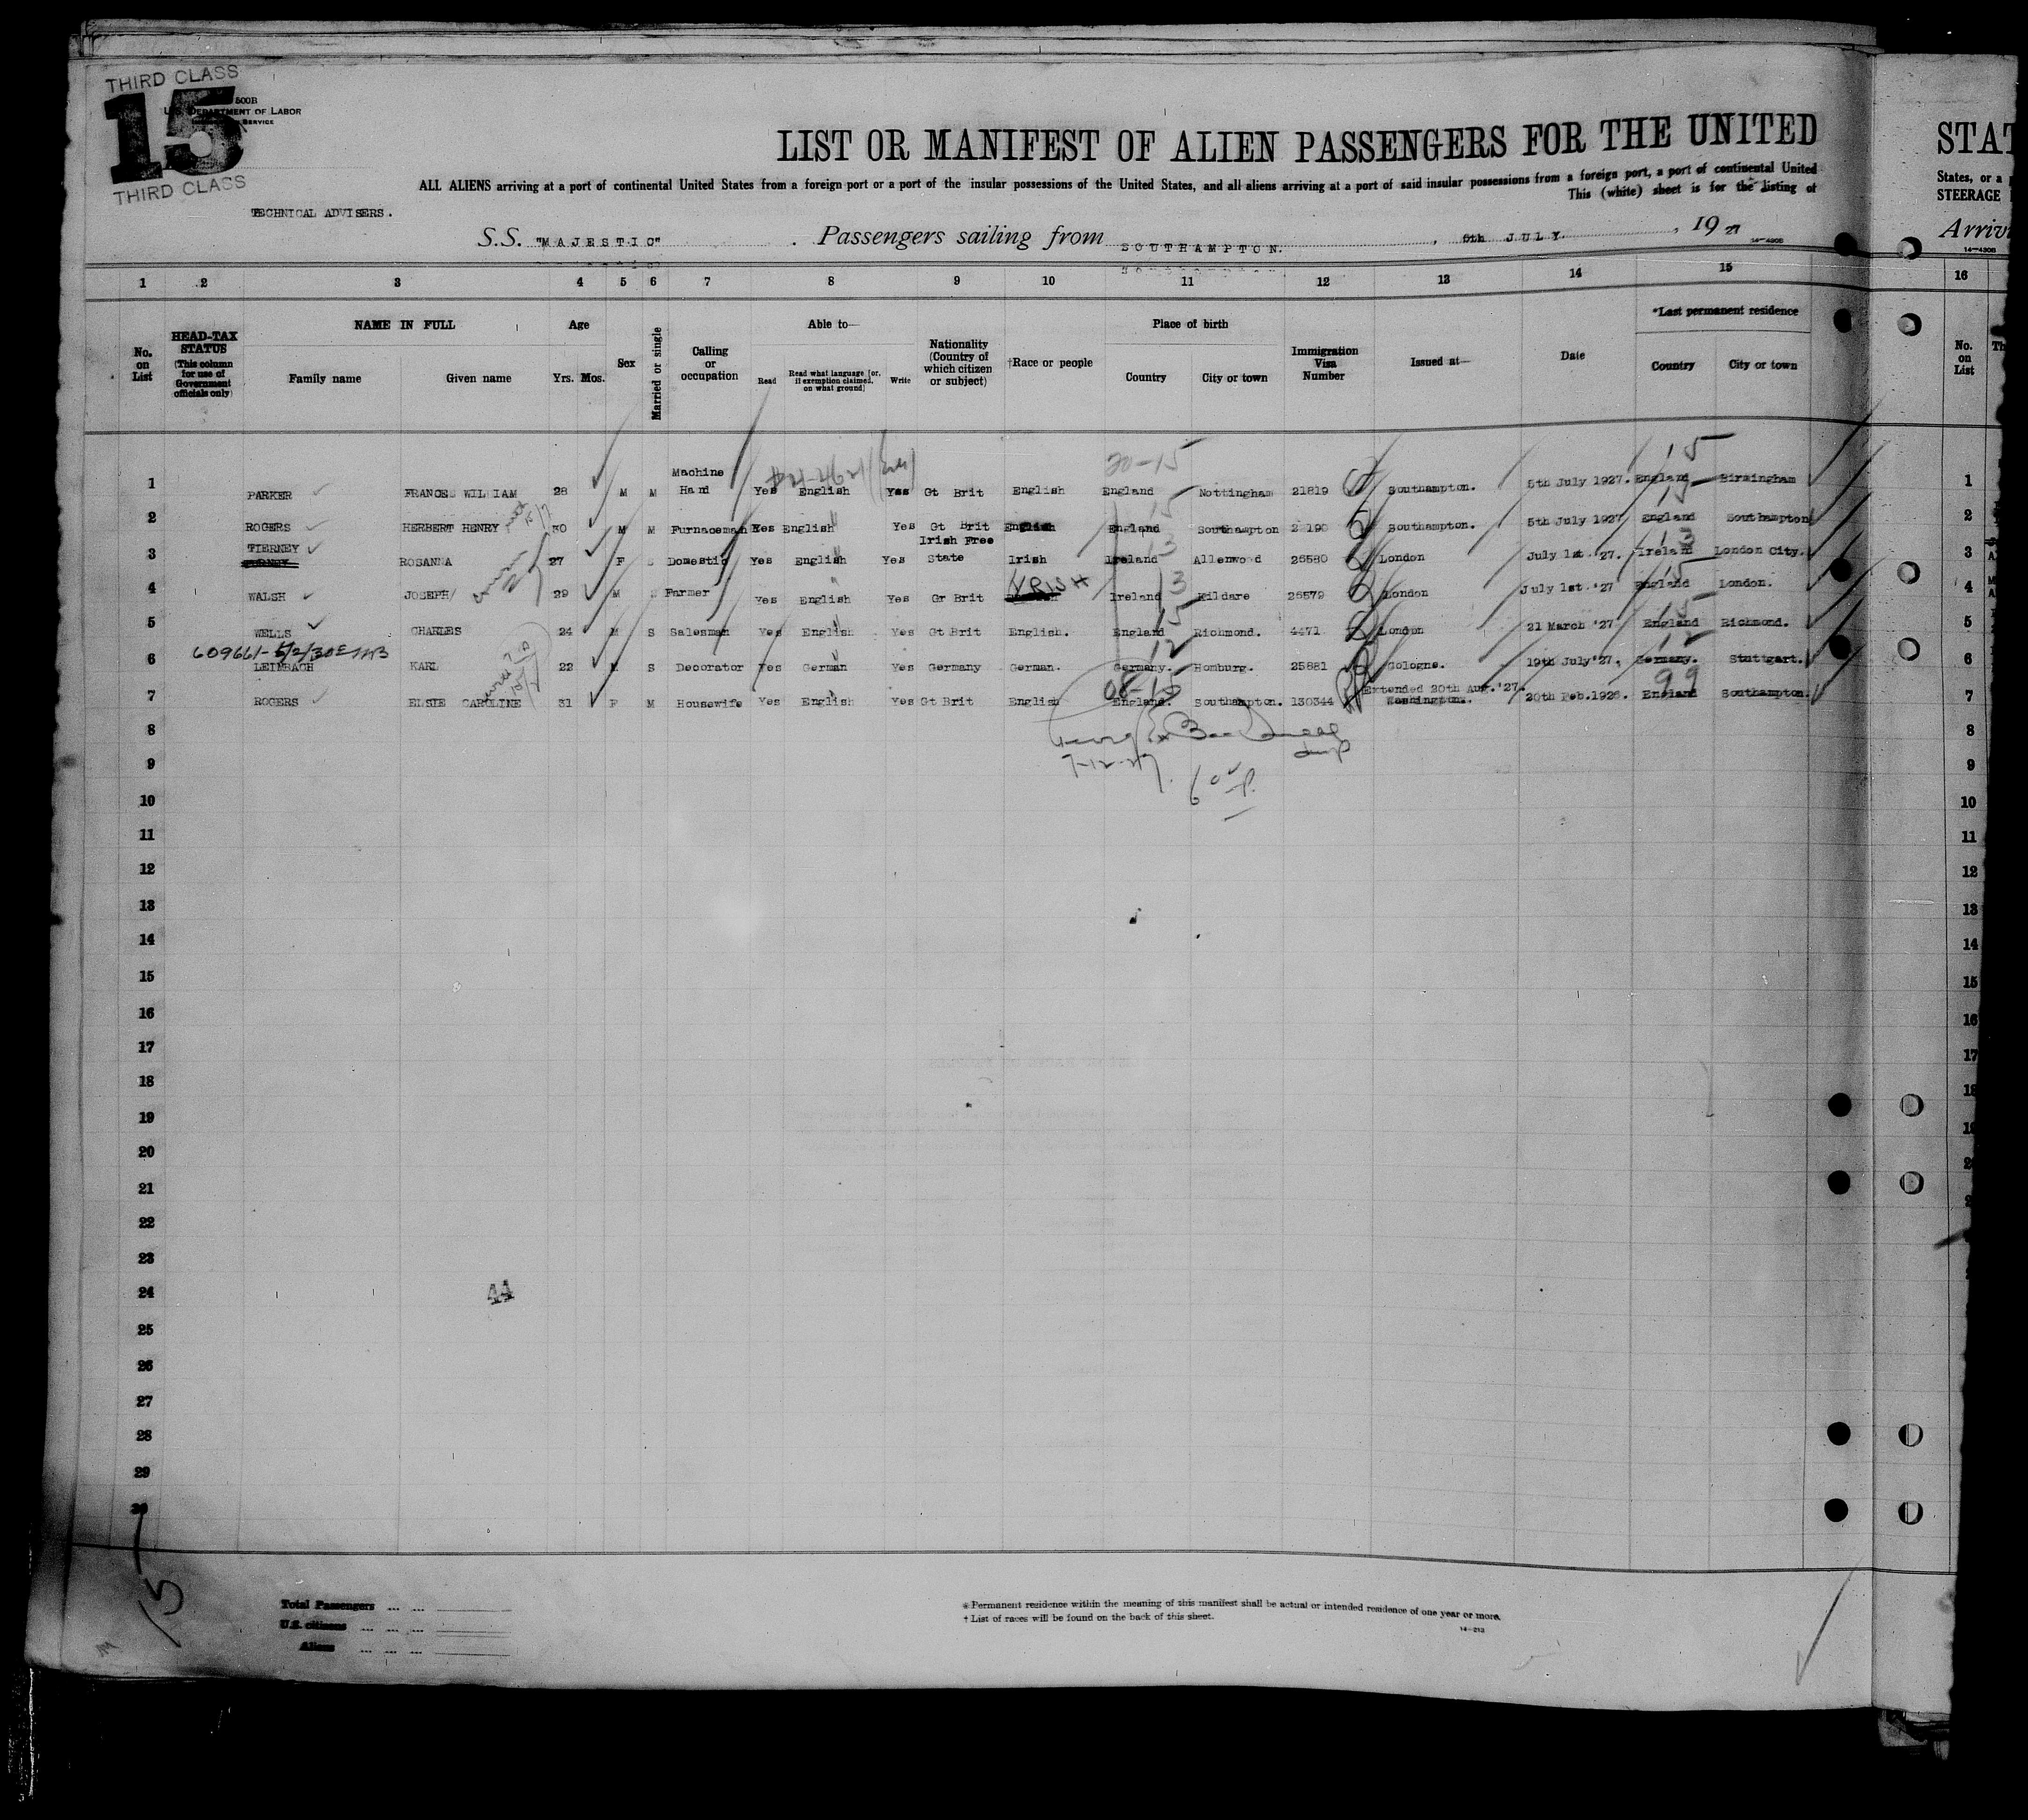 THIRD CLASS
15
500B
U.S. DEPARTMENT OF LABOR
SERVICE
THIRD CLASS
LIST OR MANIFEST OF ALIEN PASSENGERS FOR THE UNITED
STAT
ALL ALIENS arriving at a port of continental United States from a foreign port or a port of the insular possessions of the United States, and all aliens arriving at a port of said insular possessions from a foreign port, a port of continental United
States, or a
This (white) sheet is for the listing of
STEERAGE
TECHNICAL ADVISERS.
S.S. "MAJESTIC" Passengers sailing from SOUTHAMPTON. , 6th JULY. , 19 27
Arrivi
14-430B
1 2 3 4 5 6 7 8 9 10 11 12 13 14 15 16
No. on List
HEAD-TAX STATUS (This column for use of Government officials only)
NAME IN FULL
Family name Given name
Age
Yrs. Mos.
Sex
Married or single
Calling or occupation
Able to—
Read Read what language (or, if exemption claimed, on what ground) Write
Nationality (Country of which citizen or subject)
†Race or people
Place of birth
Country City or town
Immigration Visa Number
Issued at—
Date
*Last permanent residence
Country City or town
No. on List
1 PARKER FRANCES WILLIAM 28 M M Machine Hand Yes English Yes Gt Brit English England Nottingham 21819 Southampton. 5th July 1927. England Birmingham 1
20-15
15
2 ROGERS HERBERT HENRY 30 M M Furnaceman Yes English Yes Gt Brit English England Southampton Southampton. 5th July 1927 England Southampton 2
3 TIERNEY ROSANNA 27 F S Domestic Yes English Yes Irish Free State Irish Ireland Allenwood 26580 London July 1st. '27. Ireland London City. 3
4 WALSH JOSEPH 29 M S Farmer Yes English Yes Gr Brit IRISH Ireland Kildare 26579 London July 1st. '27 England London. 4
5 WELLS CHARLES 24 M S Salesman Yes English Yes Gt Brit English. England Richmond. 4471 London 21 March '27 England Richmond. 5
609661-5/2/30
6 LEINBACH KARL 22 M S Decorator Yes German Yes Germany German. Germany. Homburg. 25881 Cologne. 19th July'27. Germany. Stuttgart. 6
08-15
99
7 ROGERS ELSIE CAROLINE 31 F M Housewife Yes English Yes Gt Brit English England. Southampton. 130344 Extended 20th Aug.'27. Washington. 20th Feb.1926. England Southampton. 7
8
7-12-27
9
10
11
12
13
14
15
16
17
18
19
20
21
22
23
24
44
25
26
27
28
29
30
15
Total Passengers ... ...
U.S. citizens ... ... ...
Aliens ... ... ...
* Permanent residence within the meaning of this manifest shall be actual or intended residence of one year or more.
† List of races will be found on the back of this sheet.
14-213